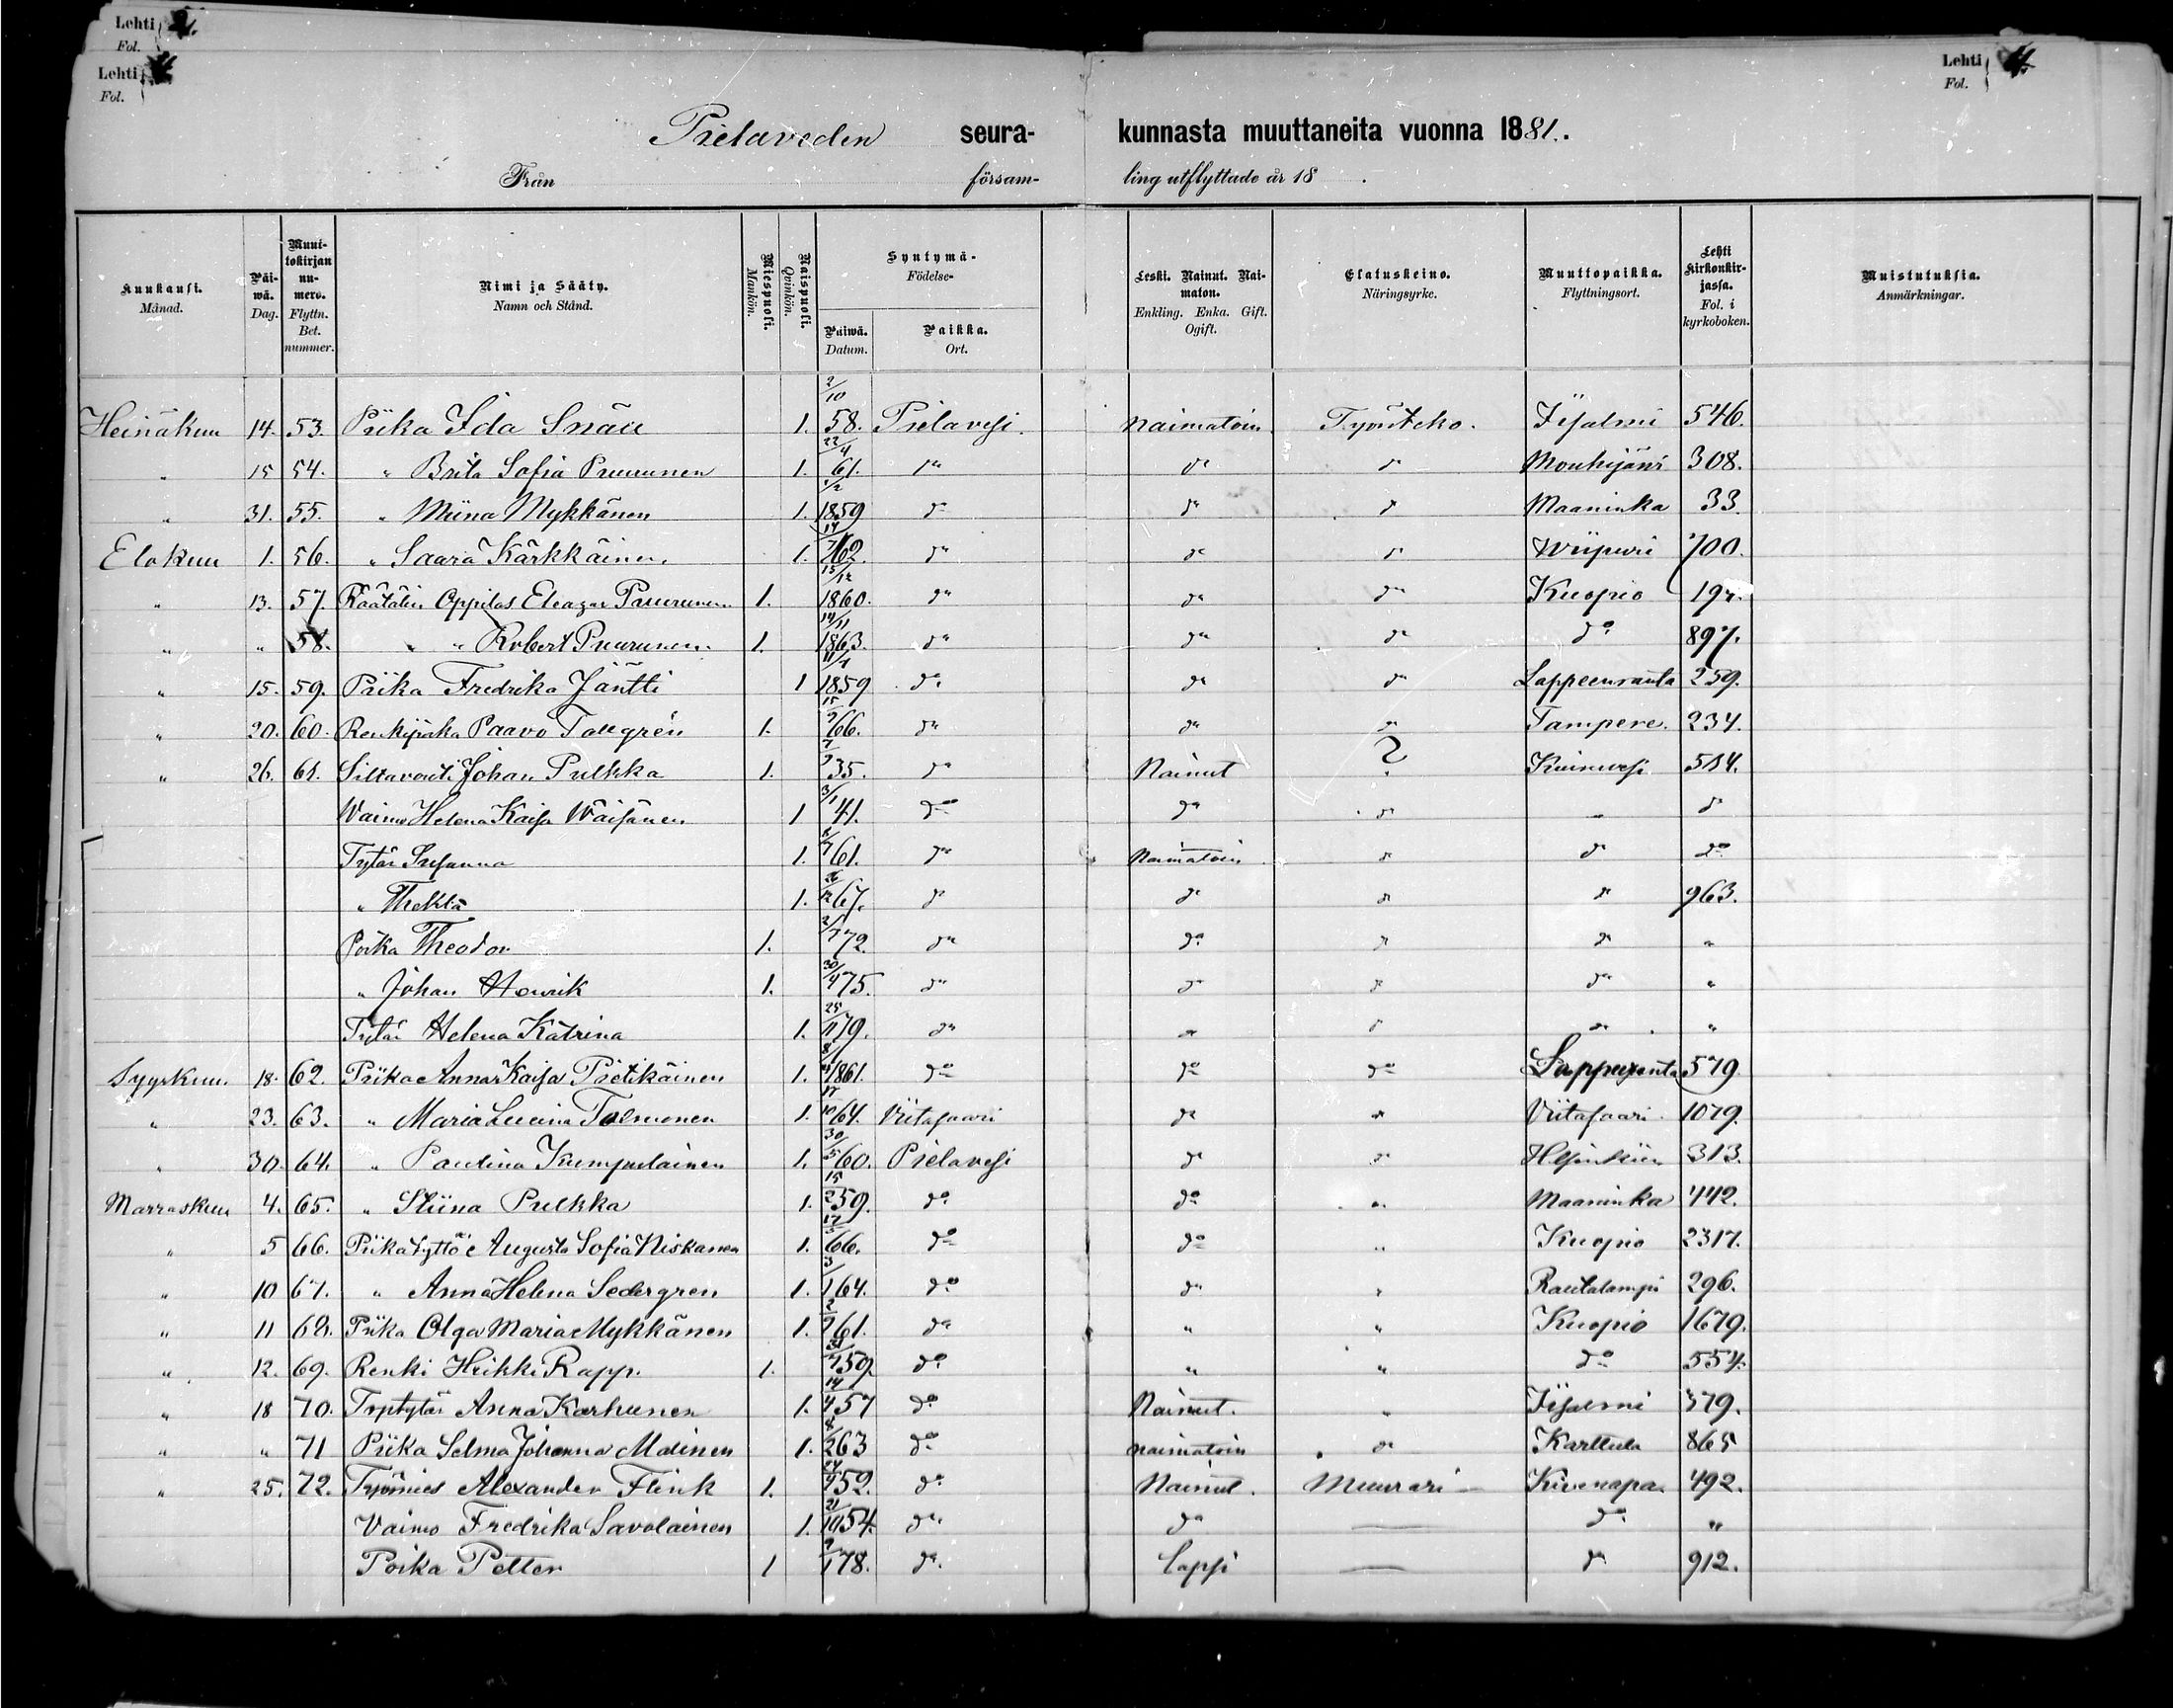 Lehti 2.
Fol.
Lehti 4.
Fol.
Lehti 4.
Fol.
Pielaveden seura- kunnasta muuttaneita vuonna 1881.
Från försam- ling utflyttade år 18 .
Kuukausi. Månad. Päi-wä. Dag. Muut-tokirjan nu-mero. Flyttn. Bet. nummer. Nimi ja Sääty. Namn och Stånd. Miespuoli. Mankön. Naispuoli. Quinkön. Syntymä- Födelse- Päiwä. Datum. Paikka. Ort. Leski. Nainut. Nai-maton. Enkling. Enka. Gift. Ogift. Elatuskeino. Näringsyrke. Muuttopaikka. Flyttningsort. Lehti Kirkonkir-jassa. Fol. i kyrkoboken. Muistutuksia. Anmärkningar.
Heinäkuu 14. 53. Piika Ida Snäll 1. 2/10 58. Pielavesi. Naimatoin Työnteko. Iisalmi 546.
" 15 54. " Brita Sofia Puurunen 1. 22/4 61. do do do Mouhijärvi 308.
" 31. 55. " Miina Mykkänen 1. 1/2 1859 do do do Maaninka 33.
Elokuu 1. 56. " Saara Kärkkäinen 1. 14/7 62. do do do Wiipuri 700.
" 13. 57. Räätälin Oppilas Eleazar Puurunen 1. 15/12 1860. do do do Kuopio
" " 58. " " Robert Puurunen. 1. 14/11 1863. do do do do 897.
" 15. 59. Piika Fredrika Jäntti 1 11/7 1859 do do do Lappeenranta 259.
" 20. 60. Renkipoika Paavo Tallgrén 1. 15/9 66. do do do Tampere. 234.
" 26. 61. Siltavouti Johan Pulkka 1. 7/9 35. do Nainut ? 514.
Waimo Helena Kaisa Wäisänen 1 3/1 41. do do do " do
Tytär Susanna 1. 61. do Naimatoin do do do
" Thekla 1. 26/12 67. do do do do 963.
Poika Theodor 1. 2/7 72. do do do do "
" Johan Henrik 1. 30/4 75. do do do do "
Tytär Helena Katrina 1. 25/11 79. do do do do "
Syyskuu 18. 62. Piika Anna Kaisa Pietikäinen 1. 1861. do do do Lappeenranta 579
" 23. 63. " Maria Luciina Tolmonen 1. 17/10 64. Viitasaari do do Viitasaari 1079.
" 30. 64. " Paulina Kumpulainen 1. 30/5 60. Pielavesi do do Helsinkiin 313.
Marraskuu 4. 65. " Stiina Pulkka 1. 15/2 59. do do " Maaninka 442.
" 5 66. Piikatyttö Augusta Sofia Niskanen 1. 17/5 66. do do " Kuopio 2317.
" 10 67. " Anna Helena Sedergren 1. 3/1 64. do do " Rautalampi 296.
" 11 68. Piika Olga Maria Mykkänen 1. 2/7 61. do " " Kuopio 1679.
" 12. 69. Renki Heikki Rapp. 1. 59. do " " do 554.
" 18 70. Anna Karhunen 1. 14/4 57 do Nainut. " Iisalmi 379.
" " 71 Piika Selma Johanna Malinen 1. 8/2 63 do naimatoin do Karttula 865
" 25. 72. Työmies Alexander Flink 1. 24/4 52. do Nainut. Muurari Kivenapa. 492.
Vaimo Fredrika Savolainen 1. 21/10 54. do do — do "
Poika Petter 1 9/1 78. do. Lapsi — do 912.